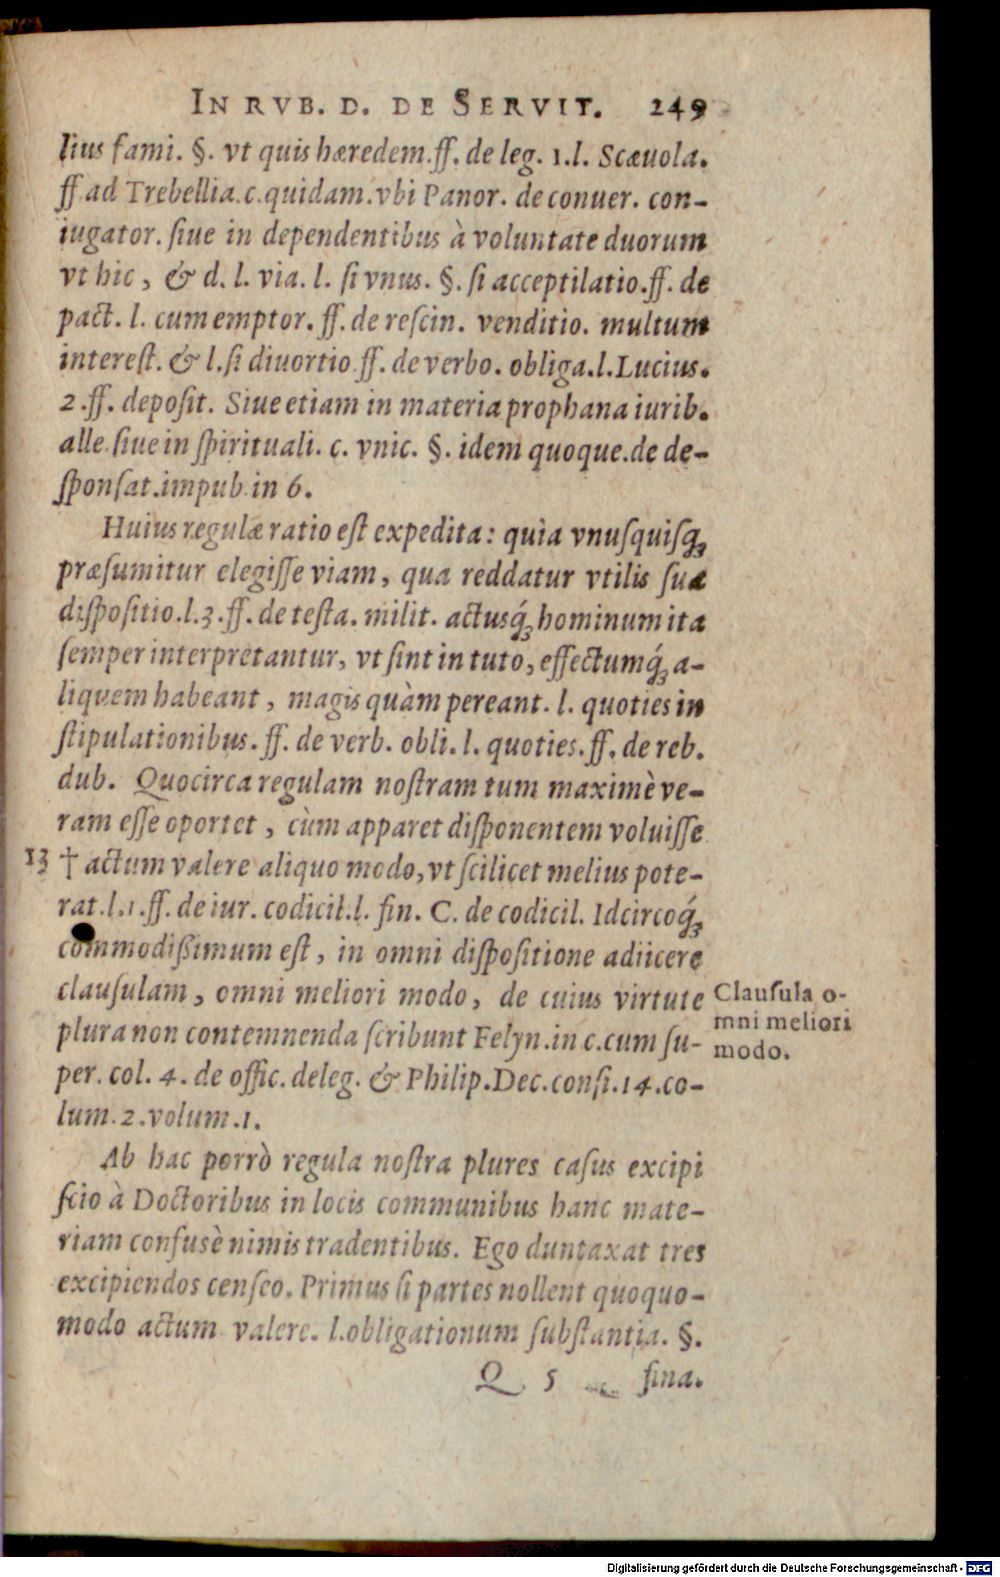 IN RVB. D. DE SERVIT. 249
lius fami. §. vt quis hæredem. ff. de leg. 1. l. Scæuola.
ff. ad Trebellia. c. quidam. vbi Panor. de conuer. con-
iugator. siue in dependentibus à voluntate duorum
vt hic, & d. l. via. l. si vnus. §. si acceptilatio. ff. de
pact. l. cum emptor. ff. de rescin. venditio. multum
interest. & l. si diuortio ff. de verbo. obliga. l. Lucius.
2. ff. deposit. Siue etiam in materia prophana iurib.
alle. siue in spirituali. c. vnic. §. idem quoque. de de-
sponsat. impub. in 6.
Huius regulæ ratio est expedita: quia vnusquisqꝫ
præsumitur elegisse viam, qua reddatur vtilis sua
dispositio. l. 3. ff. de testa. milit. actusq́ꝫ hominum ita
semper interpretantur, vt sint in tuto, effectumq́ꝫ a-
liquem habeant, magis quàm pereant. l. quoties in
stipulationibus. ff. de verb. obli. l. quoties. ff. de reb.
dub. Quocirca regulam nostram tum maximè ve-
ram esse oportet, cùm apparet disponentem voluisse
13 † actum valere aliquo modo, vt scilicet melius pote-
rat. l. 1. ff. de iur. codicil. l. fin. C. de codicil. Idcircoq́ꝫ
commodißimum est, in omni dispositione adiicere
clausulam, omni meliori modo, de cuius virtute
Clausula o-
mni meliori
modo.
plura non contemnenda scribunt Felyn. in c. cum su-
per. col. 4. de offic. deleg. & Philip. Dec. consi. 14. co-
lum. 2. volum. 1.
Ab hac porrò regula nostra plures casus excipi
scio à Doctoribus in locis communibus hanc mate-
riam confusè nimis tradentibus. Ego duntaxat tres
excipiendos censeo. Primus si partes nollent quoquo-
modo actum valere. l. obligationum substantia. §.
Q 5 fina.
Digitalisierung gefördert durch die Deutsche Forschungsgemeinschaft - DFG